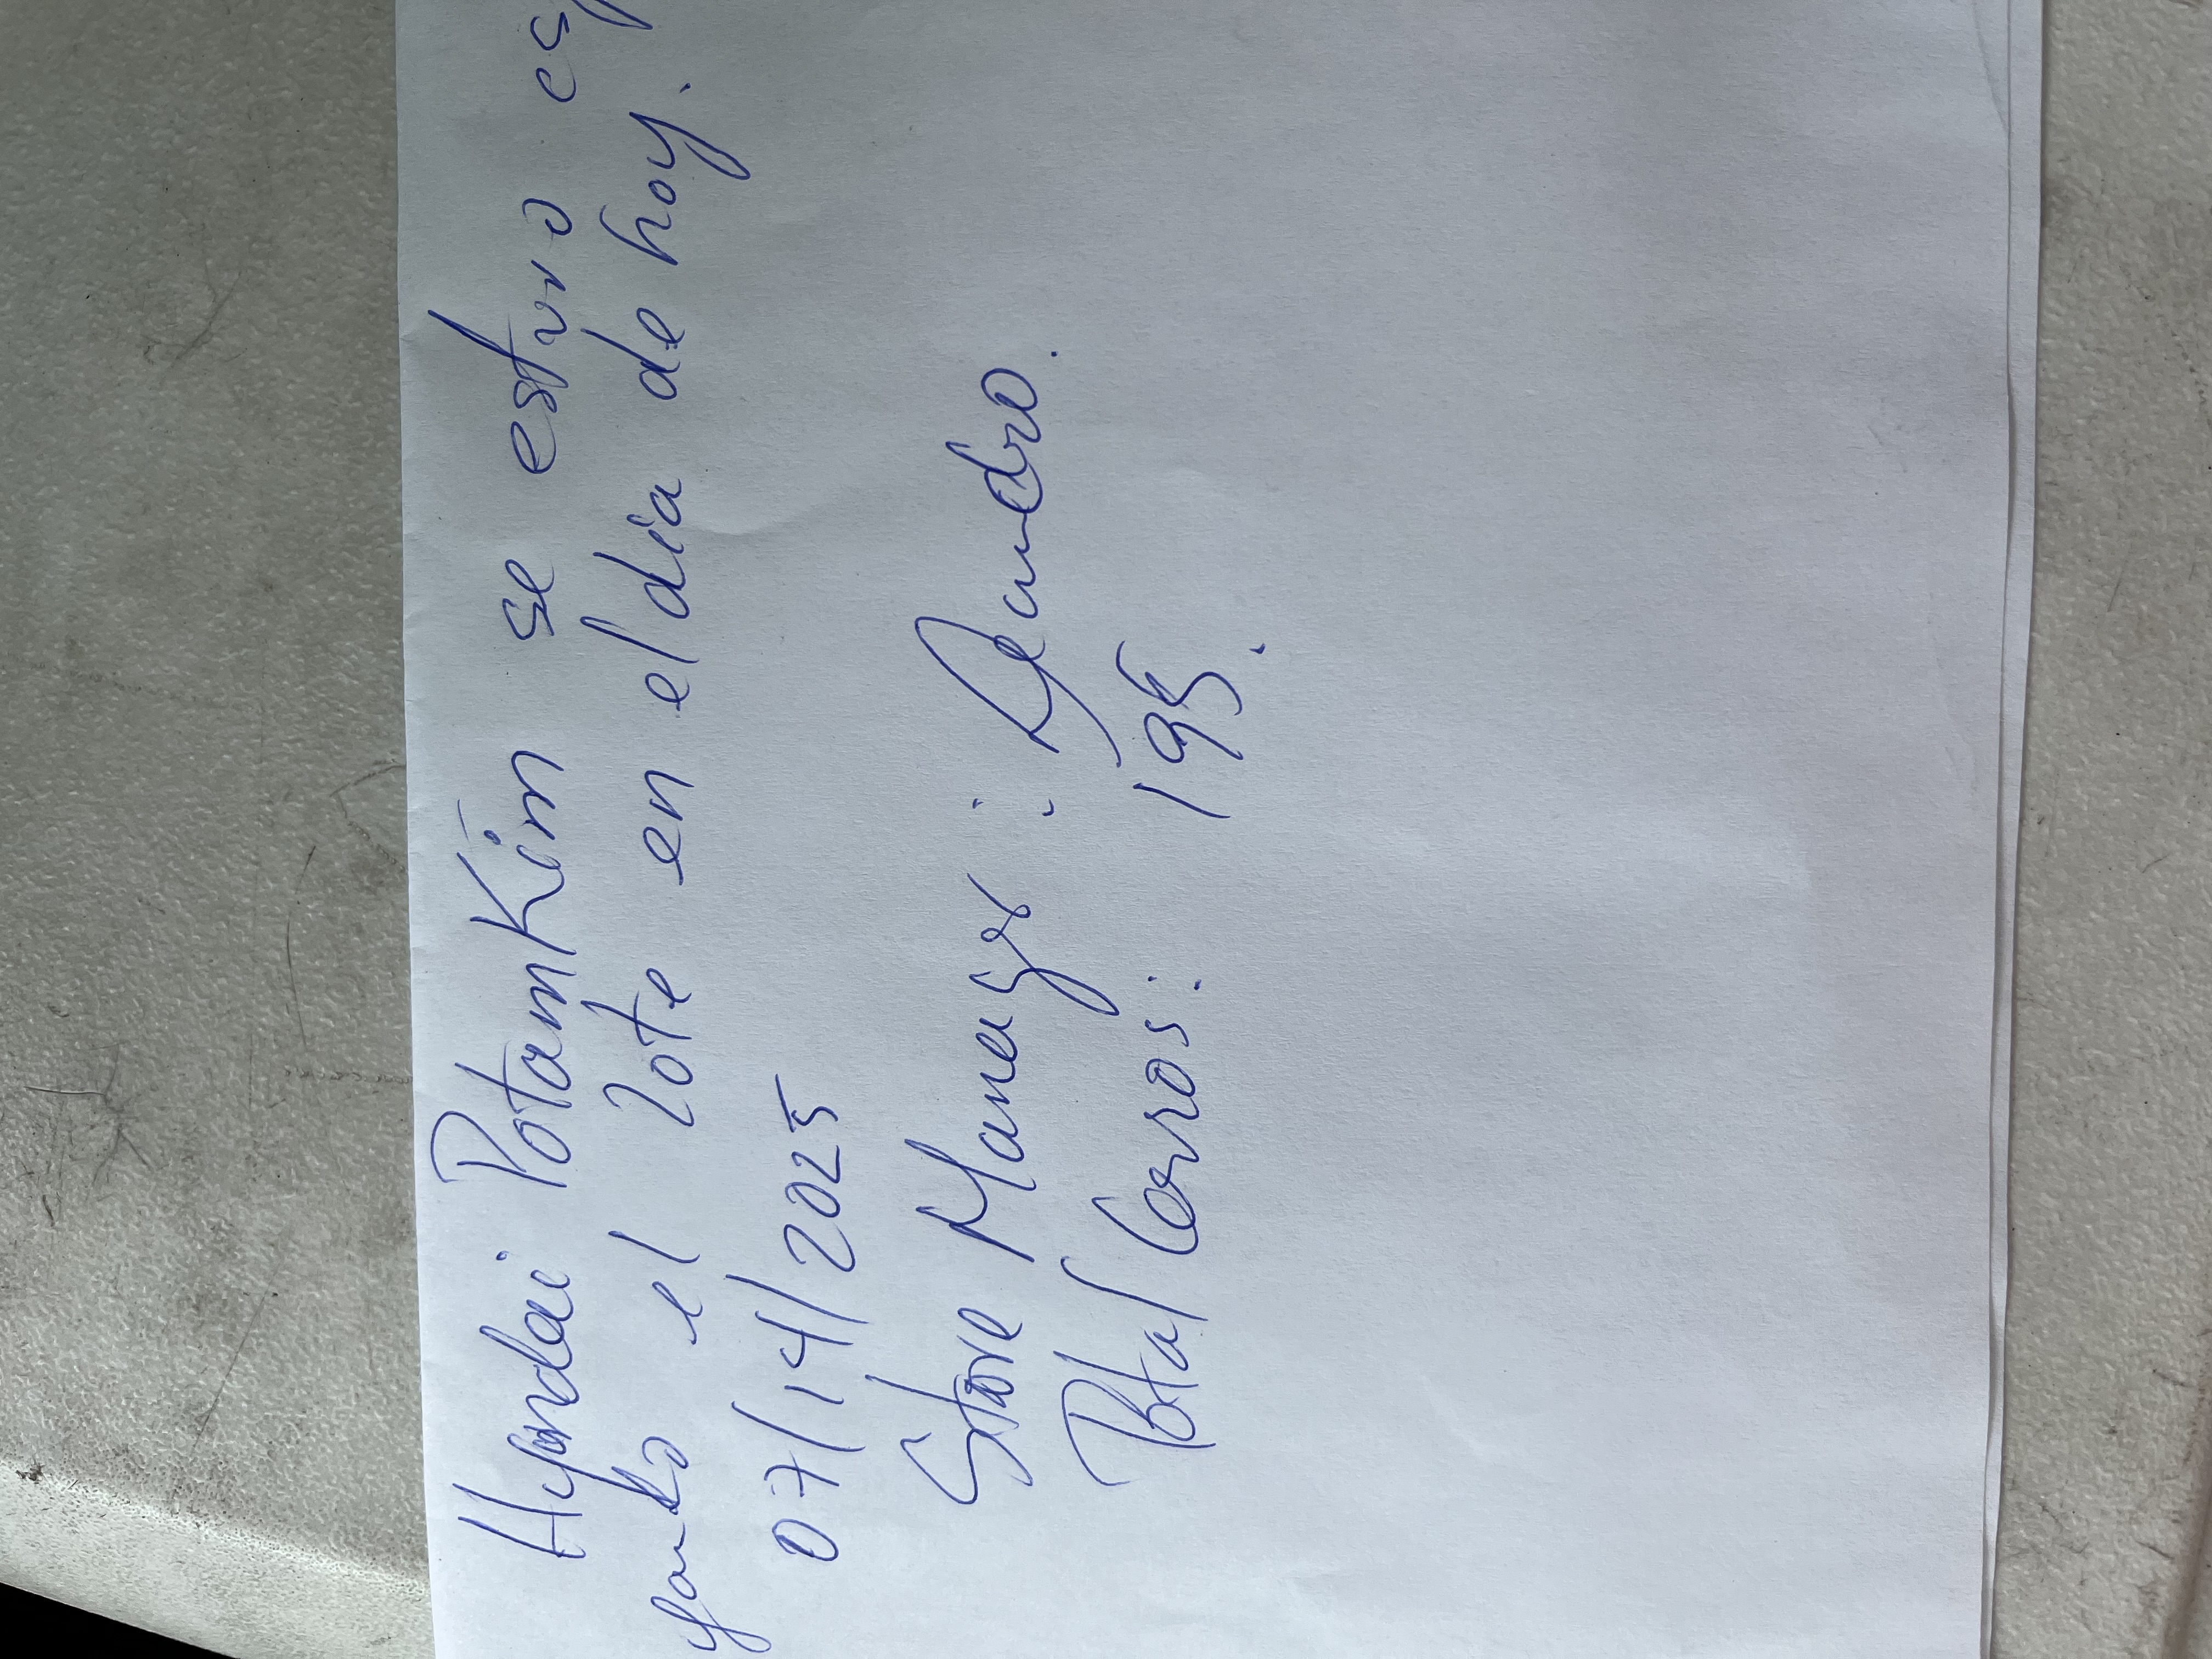 Hyundai PotamKim se estuvo
el lote en el dia de hoy.
07/14/2025
Store Manager:
Total Carros: 195.